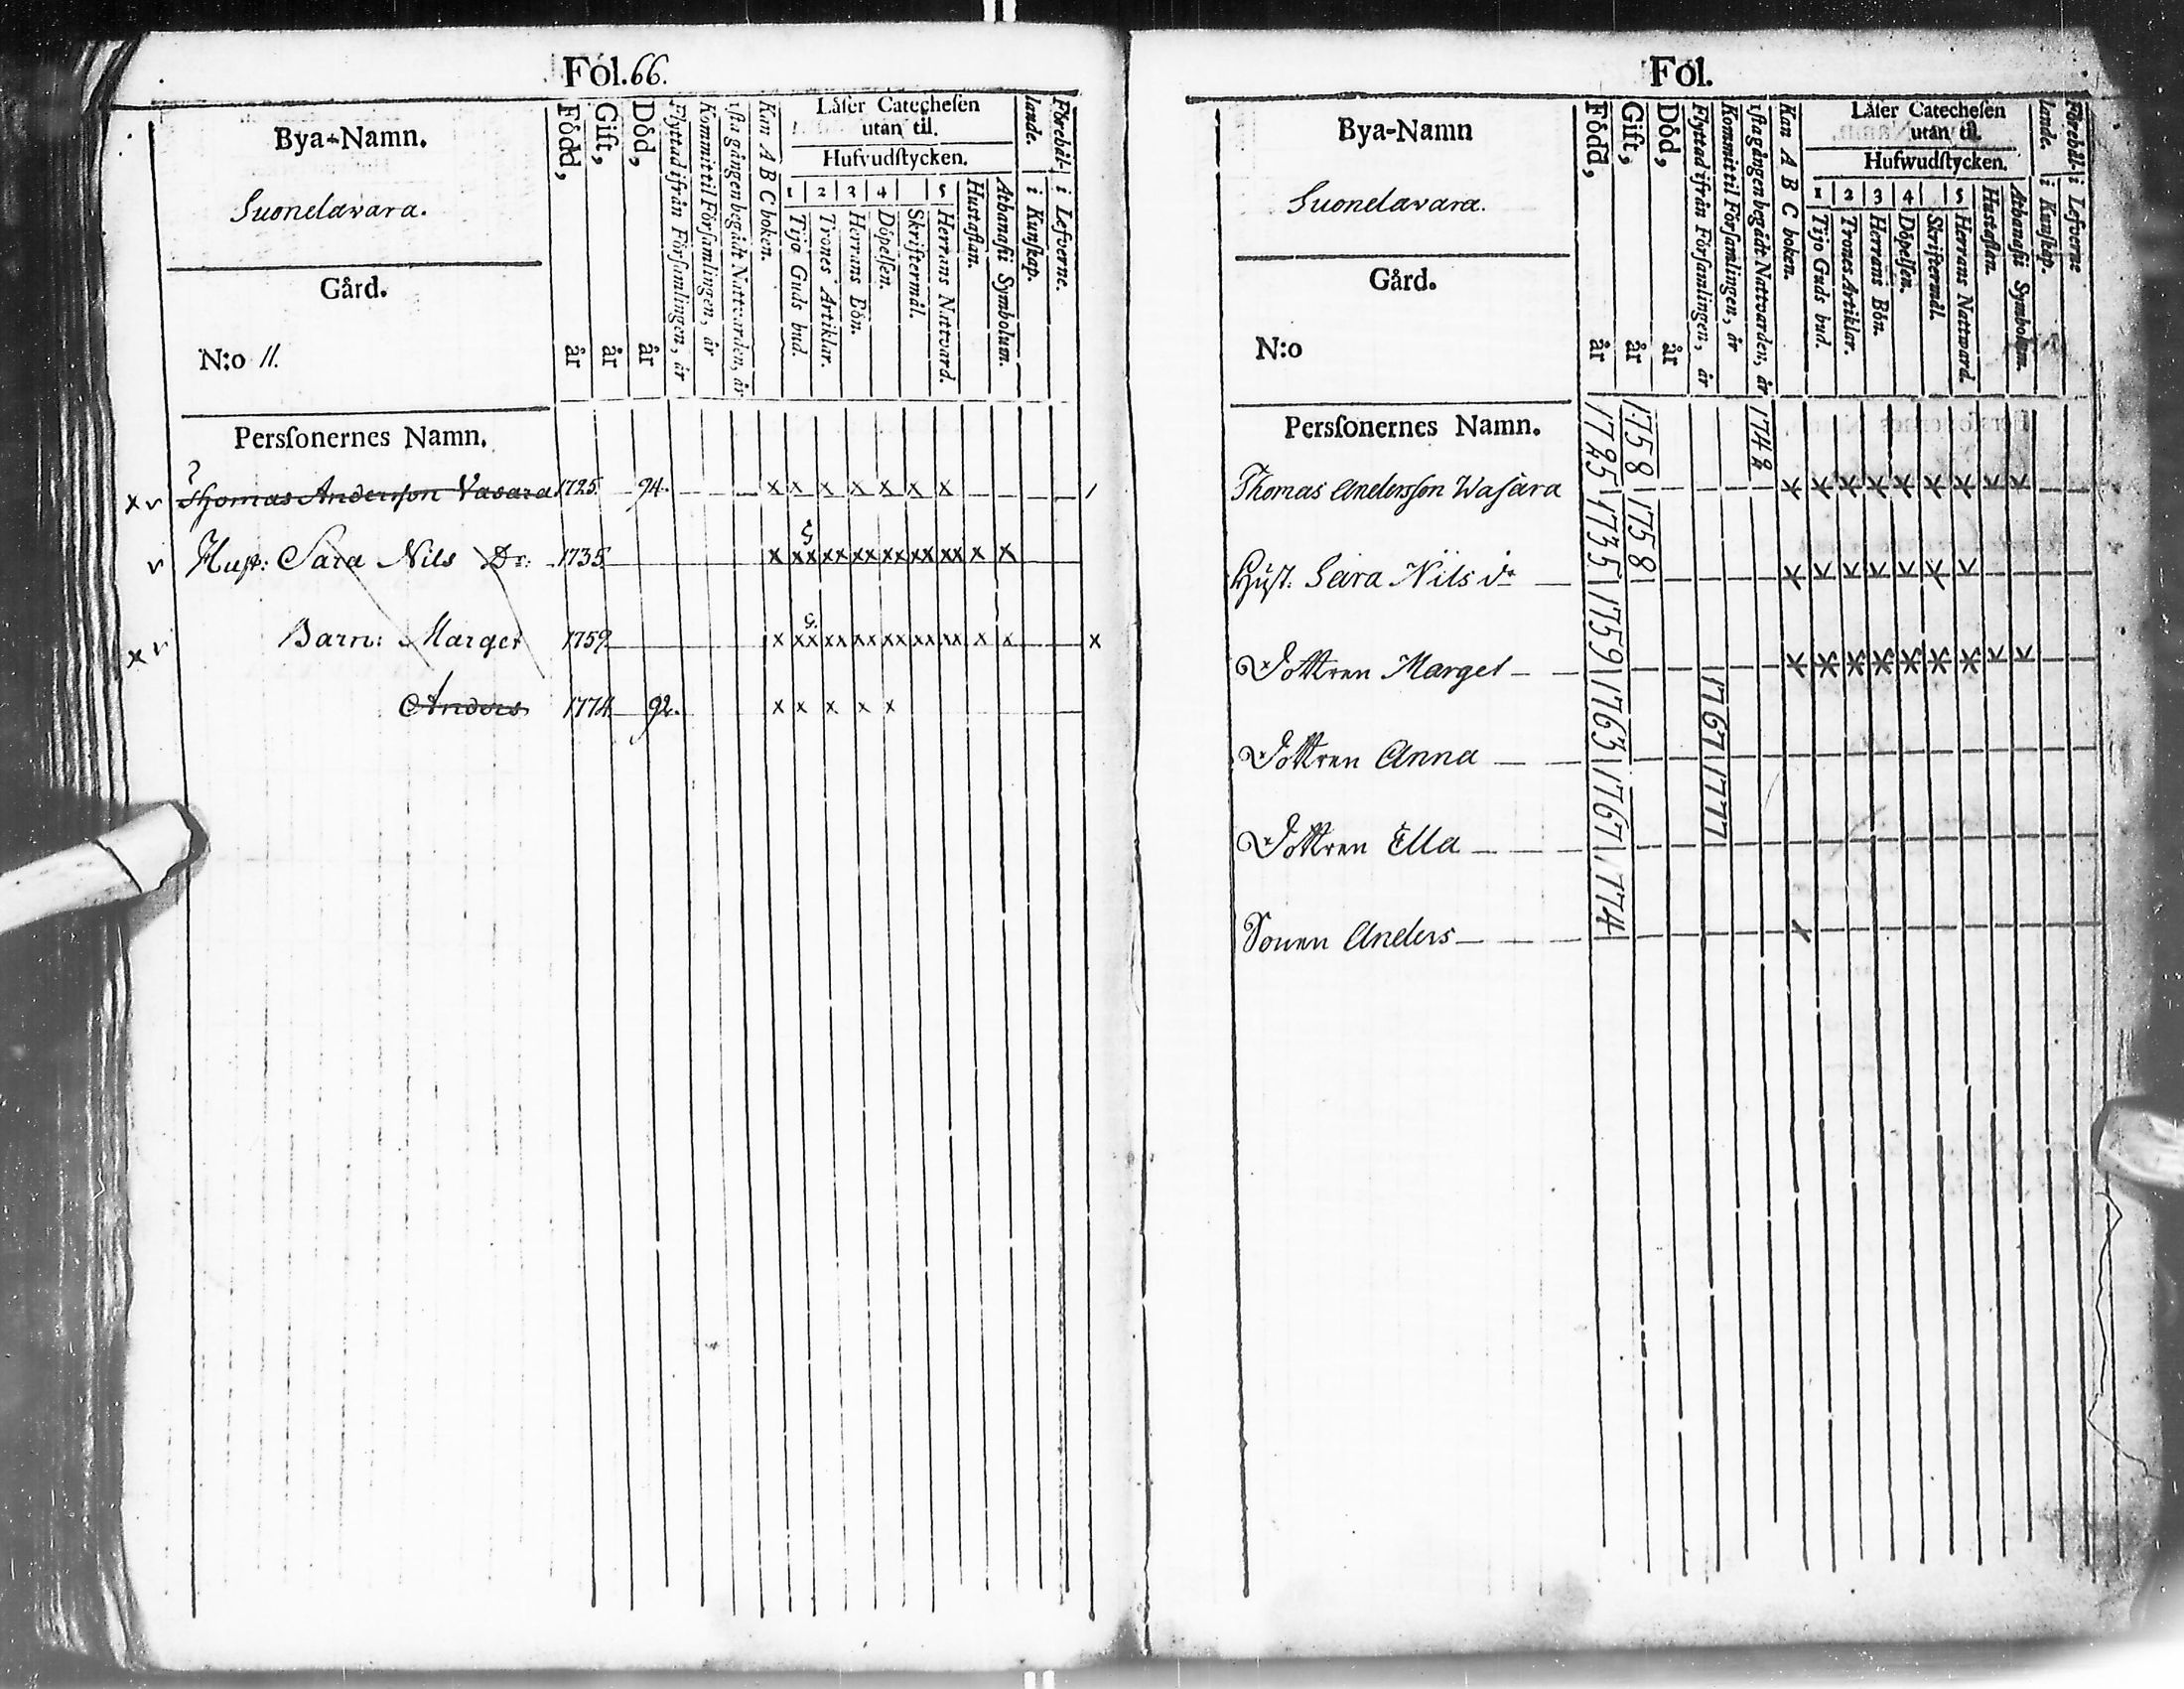 Fol. 66.
Bya-Namn.
Suonelavara.
Gård.
N:o 11.
Persſonernes Namn.
Född, år
Gift, år
Död, år
Flyttad ifrån Förſamlingen, år
Kommit til Förſamlingen, år
1ſta gången begådt Nattvarden, år
Kan A B C boken.
Läſer Catecheſen
utan til.
Hufvudſtycken.
1 2 3 4 5
Tijo Guds bud.
Trones Artiklar.
Herrans Bön.
Döpelſen.
Skriftermål.
Herrans Nattvard.
Hustaflan.
Athanaſii Symbolum.
Förehål-
lande.
i Kunſkap.
i Lefverne.
x v Thomas Andersſon Vasara 1725. 94. x x x x x x x
v Hust: Sara Nils Dr: 1735. x xx xx xx xx xx xx x x
x v Barn: Marget 1759. x xx xx xx xx xx xx x x x
Anders 1774. 92. x x x x x
Fol.
Bya-Namn
Suonelavara.
Gård.
N:o
Persſonernes Namn.
Född, år
Gift, år
Död, år
Flyttad ifrån Förſamlingen, år
Kommit til Förſamlingen, år
1ſta gången begådt Nattvarden, år
Kan A B C boken.
Läſer Catecheſen
utan til.
Hufwudſtycken.
1 2 3 4 5
Tijo Guds bud.
Trones Artiklar.
Herrans Bön.
Döpelſen.
Skriftermål.
Herrans Nattward.
Hustaflan.
Athanaſii Symbolum.
Förehål-
lande.
i Kunſkap.
i Lefverne
Thomas Andersſon Wasara 1725 1758 1742
Hust. Sara Nils dr 1735 1758
Dottren Marget 1759
Dottren Anna 1763 1767
Dottren Ella 1767 1777
Sonen Anders 1774 x